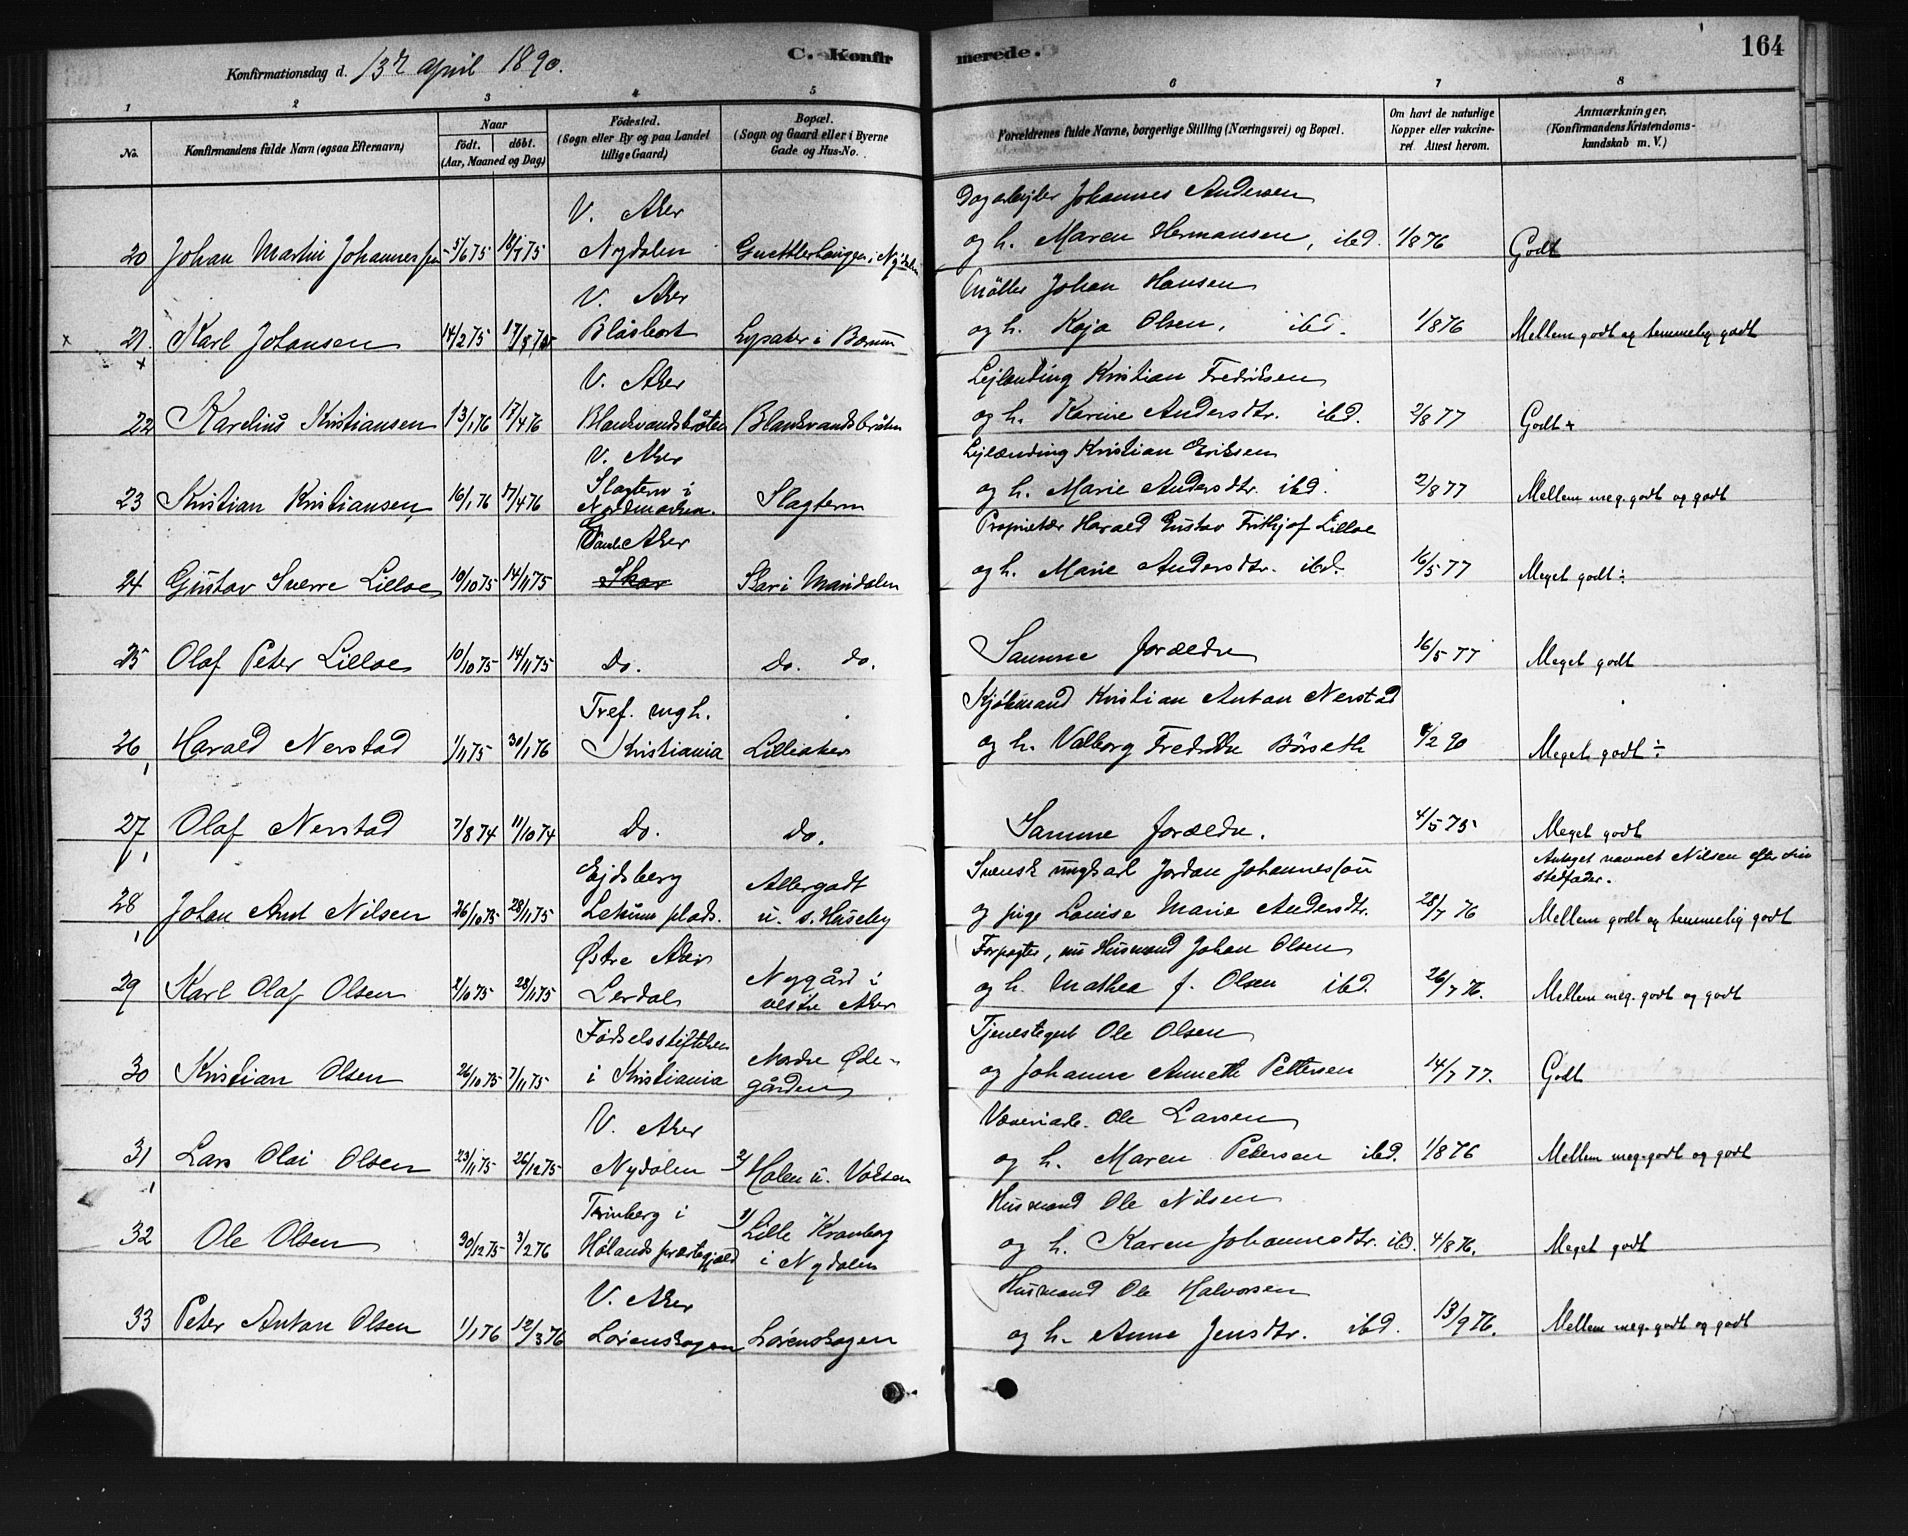 Konfirmationsdag d. 13de April 1890.
C. Konfirmerede.
164
1 2 3 4 5 6 7 8
No.
Konfirmandens fulde Navn (ogsaa Efternavn)
Naar født. døbt. (Aar, Maaned og Dag)
Fødested. (Sogn eller By og paa Landet tillige Gaard)
Bopæl. (Sogn og Gaard eller i Byerne Gade og Hus-No.
Forældrenes fulde Navne, borgerlige Stilling (Næringsvei) og Bopæl.
Om havt de naturlige Kopper eller vakcineret. Attest herom.
Anmærkninger. (Konfirmandens Kristendomskundskab m. V.)
V. Aker Dagarbejder Johannes Andersen
20 Johan Martin Johannessen 5/6 75 18/7 75 Nydalen i Nydalen og h. Maren Hermansen, ibd. 1/8 76 Godt
V. Aker Møller Johan Hansen
21. Karl Johansen 14/2 75 17/8 75 Lysaker i Bærum og h. Kaja Olsen, ibd. 1/8 76 Mellem godt og temmelig godt
V. Aker Lejlending Kristian Fredriksen
22 Karelius Kristiansen 13/1 76 17/4 76 Blankvandsbråten Blankvandsbråten og h. Karine Andersdtr. ibd. 2/8 77 Godt +
V. Aker Lejlænding Kristian Eriksen
23 Kristian Kristiansen 16/1 76 17/4 76 Slagtern i Nordmarken. Slagtern og h. Marie Andersdtr. ibd. 2/8 77 Mellem meg. godt og godt
Gamle Aker Proprietær Harald Gustav Frithjof Lilloe
24 Gustav Sverre Lilloe 10/10 75 14/11 75 Skar Skar i Maridalen og h. Marie Andersdtr. ibd. 16/5 77 Meget godt ÷
25 Olaf Peter Lilloe 10/10 75 14/11 75 Do. do. do. Samme forældre 16/5 77 Meget godt
Tref. mgh. Kjøbmand Kristian Anton Nerstad
26 Harald Nerstad 1/11 75 30/1 76 Kristiania Lilleaker og h. Valborg Fredrikke Børseth 2 90 Meget godt ÷
27 Olaf Nerstad 7/8 74 11/10 74 do. do. Samme forældre. 4/5 75 Meget godt
Ejdsberg Svensk ungkarl Jordan Johannesson Antaget navnet Nilsen efter sin stedfader.
28 Johan Nilsen 26/10 75 28/11 75 Lekum plads. u. s. Huseby og pige Louise Marie Andersdtr. 28/7 76 Mellem godt og temmelig godt
Østre Aker Forpagter, nu Husmand Johan Olsen
29 Karl Olaf Olsen 2/10 75 28/11 75 Lerdal Nygård i vestre Aker og h. Mathea f. Olsen ibd. 26/7 76. Mellem meg. godt og godt
Fødselsstiftelsen Tjenestegut Ole Olsen
30 Kristian Olsen 26/10 75 7/11 75 i Kristiania Nordre Ødegården og Johanne Annette Pettersen 14/7 77. Godt
V. Aker Væveriarb. Ole Larsen
31 Lars Olai Olsen 23/11 75 26/12 75 Nydalen Holen u. Volsen og h. Maren Petersen ibd. 1/8 76 Mellem meg. godt og godt
i Husmand Ole Nilsen
32 Ole Olsen 30/12 75 3/2 76 Hølands præstegjæld Lille i Nydalen og h. Karen Johannesdtr. ibd. 4/8 76. Meget godt
V. Aker Husmand Ole Halvorsen
33 Peter Anton Olsen 1/1 76 12/3 76 Lørenskogen Lørenskogen og h. Anne Jensdtr. ibd. 13/9 76. Mellem meg. godt og godt